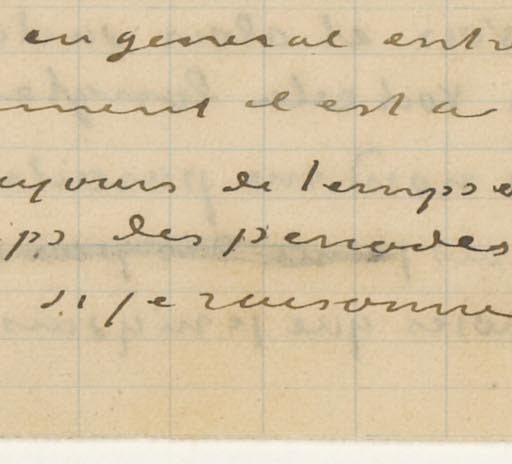 en general entr
ement c'est a
oujours de temps e
ps des periodes
si je raisonne